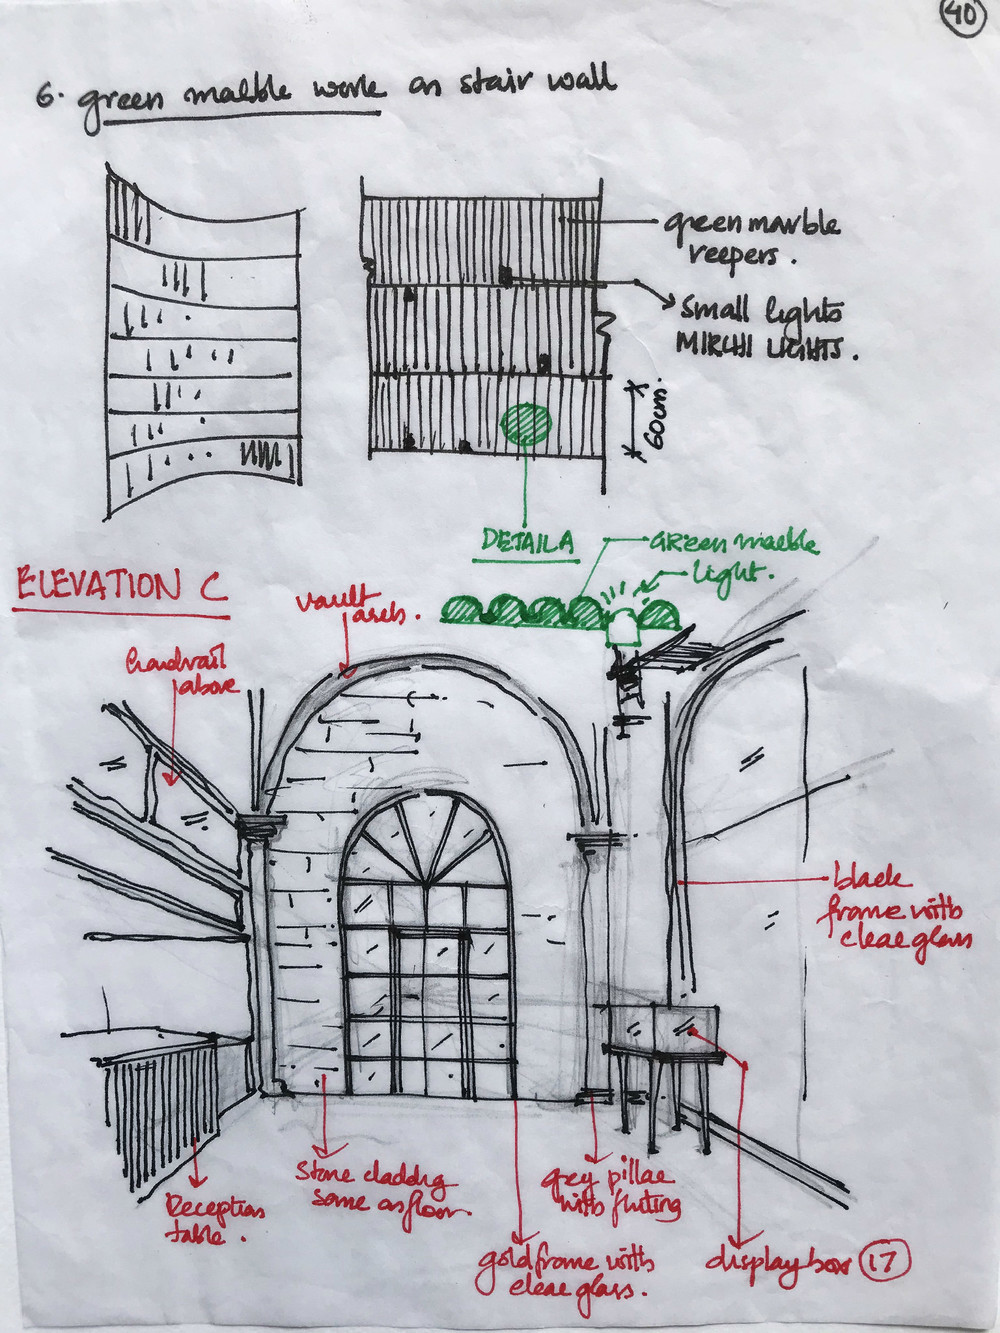 40
6. green marble work on stair wall
green marble
reepers.
small lights
MIRCHI LIGHTS.
60cm.
DETAIL A
GREEN marble
light.
ELEVATION C
vault
arch.
handrail
above
black
frame with
clear glass
Reception
table.
Stone cladding
same as floor.
grey pillar
with fluting
gold frame with
clear glass.
display box 17